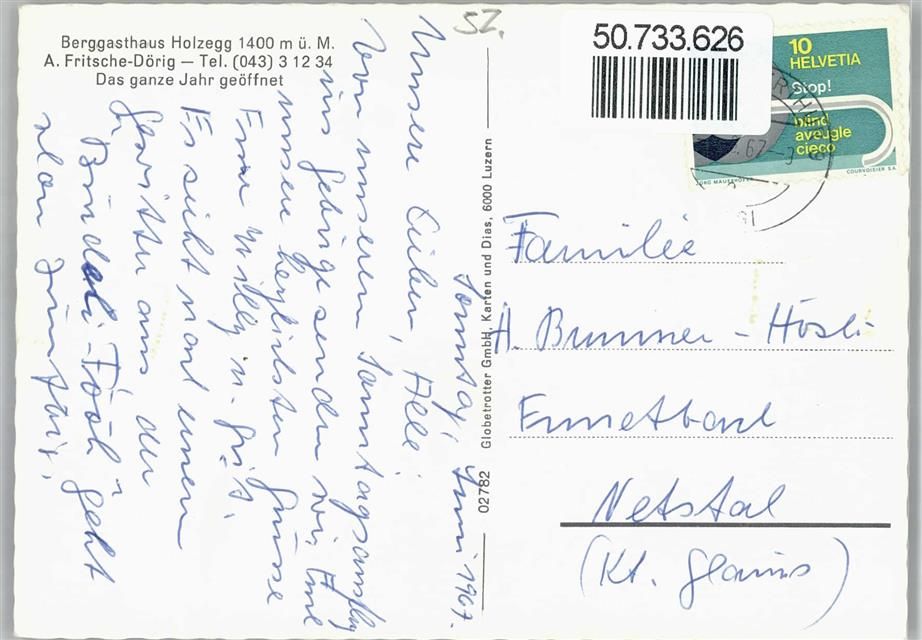 Berggasthaus Holzegg 1400 m ü. M.
A. Fritsche-Dörig — Tel. (043) 3 12 34
Das ganze Jahr geöffnet
SZ.
50.733.626
10
HELVETIA
Stop!
blind
aveugle
cieco
COURVOISIER S.A.
Sonntag, Juni 1967.
Unsere Lieben, Alle!
Von unserem Sonntagsausflug
ins Gebirge senden wir Eine
unsere herzlichsten Grüsse
Euer Willy u.
Es sieht nach einem
Gewitter aus, der
Bündeli-Föst geht
Globetrotter GmbH, Karten und Dias, 6000 Luzern
02782
Familie
A. Brunner - Hösli
Ennetbach
Netstal
(Kt. Glarus)